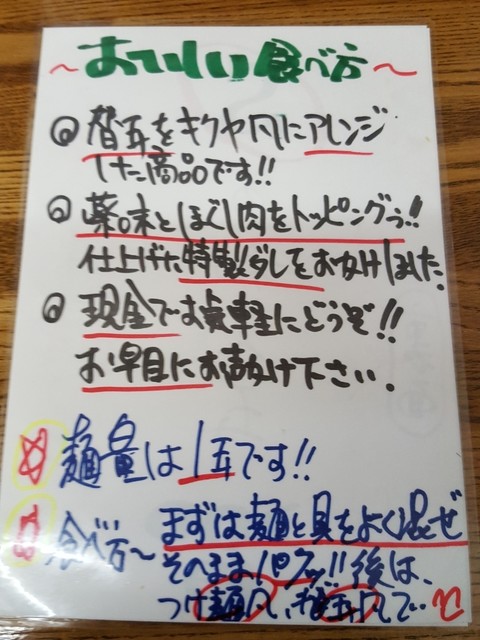 ～おいしい食べ方～
◎替玉をキクヤ風にアレンジ
した商品です!!
◎薬味とほぐし肉をトッピング!!
仕上げた特製ダレをお分けしました。
◎現金でお気軽にどうぞ!!
お早目にお声がけ下さい。
麺量は1玉です!!
食べ方～まずは麺と具をよく混ぜ
そのままパクッ!! 後は、
つけ麺風、して…